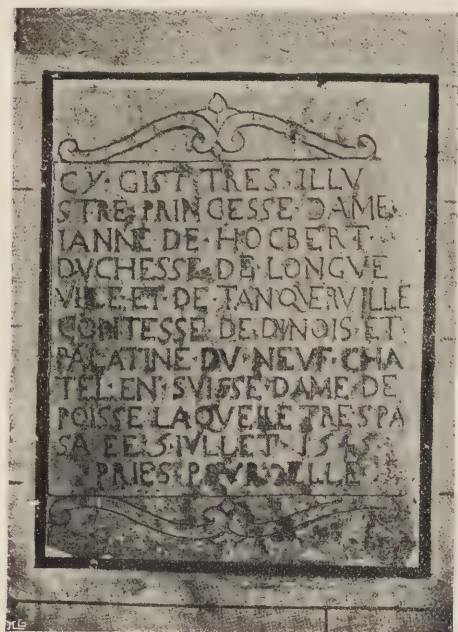 CY·GIST·TRES·ILLV
STRE·PRINCESSE·DAME
IANNE·DE·HOCBERT
DVCHESSE·DE·LONGVE
VILLE·ET·DE·TANQVERVILLE
CONTESSE·DE·DVNOIS·ET
PALATINE·DV·NEVF·CHA
TEL·EN·SVISSE·DAME·DE
POISSE·LAQVELLE·TRESPA
SA 5·IVLLET
PRIES·POVR·DELLE